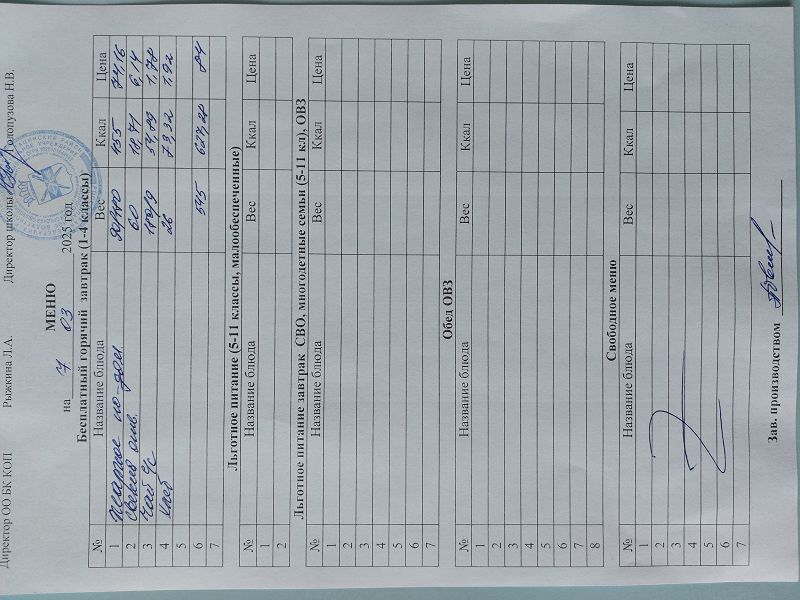 Директор ОО БК КОП Рыжкина Л.А. Директор школы Голопузова Н.В.
МЕНЮ
на 7 03 2025 год
Бесплатный горячий завтрак (1-4 классы)
№ Название блюда Вес Ккал Цена
1 Жаркое по-дом. 455 74,16
2 свекла отв. 60 18,71 6,14
3 Чай с/с 1,78
4 Хлеб 26 73,32 1,92
5
6 545 84
7
Льготное питание (5-11 классы, малообеспеченные)
№ Название блюда Вес Ккал Цена
1
2
Льготное питание завтрак СВО, многодетные семьи (5-11 кл), ОВЗ
№ Название блюда Вес Ккал Цена
1
2
3
4
5
6
7
Обед ОВЗ
№ Название блюда Вес Ккал Цена
1
2
3
4
5
6
7
8
Свободное меню
№ Название блюда Вес Ккал Цена
1
2
3
4
5
6
7
Зав. производством